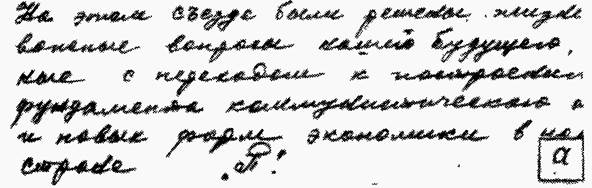 На этом съезде были решены жизне
ванные вопросы нашего будущего,
ные с переходом к построени
фундамента коммунистического о
и новых форм экономики в на
стране „П".
а